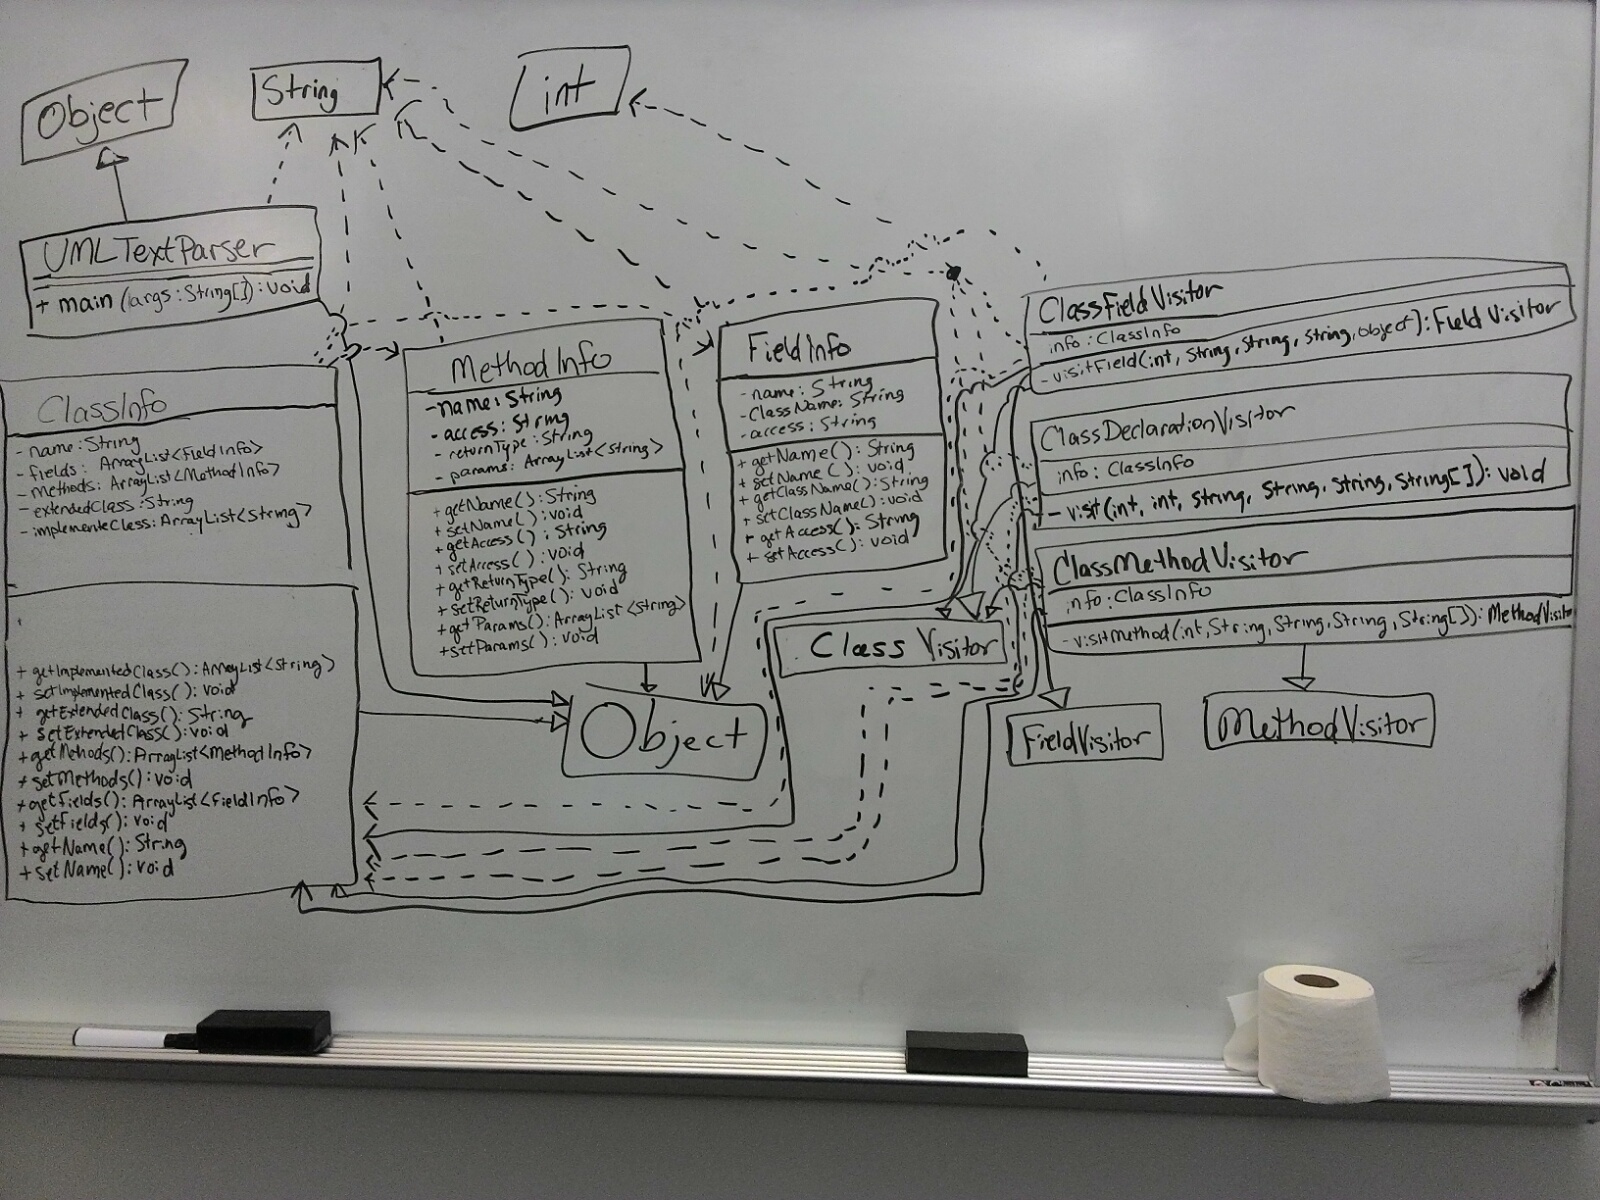 Object
String
int
UMLTextParser
+ main (args: String[]): void
ClassInfo
- name: String
- fields: ArrayList<FieldInfo>
- methods: ArrayList<MethodInfo>
- extendedClass: String
- implementeClass: ArrayList<String>
+ getImplementedClass(): ArrayList<String>
+ setImplementedClass(): void
+ getExtendedClass(): String
+ setExtendedClass(): void
+ getMethods(): ArrayList<MethodInfo>
+ setMethods(): void
+ getFields(): ArrayList<FieldInfo>
+ setFields(): void
+ getName(): String
+ setName(): void
MethodInfo
- name: String
- access: String
- returnType: String
- params: ArrayList<String>
+ getName(): String
+ setName(): void
+ getAccess(): String
+ setAccess(): void
+ getReturnType(): String
+ setReturnType(): void
+ getParams(): ArrayList<String>
+ setParams(): void
FieldInfo
- name: String
- ClassName: String
- access: String
+ getName(): String
+ setName(): void
+ getClassName(): String
+ setClassName(): void
+ getAccess(): String
+ setAccess(): void
ClassFieldVisitor
info: ClassInfo
- visitField(int, String, String, String, Object): FieldVisitor
ClassDeclarationVisitor
info: ClassInfo
- visit(int, int, String, String, String, String[]): void
ClassMethodVisitor
info: ClassInfo
- visitMethod(int, String, String, String, String[]): MethodVisitor
Class Visitor
Object
FieldVisitor
MethodVisitor